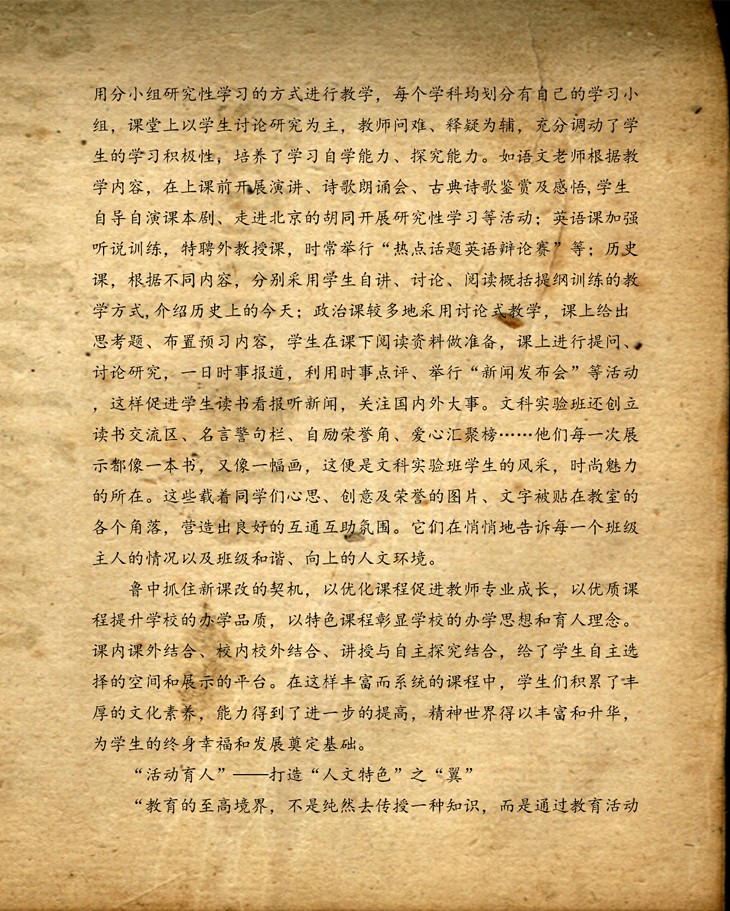 用分小组研究性学习的方式进行教学，每个学科均划分有自己的学习小
组，课堂上以学生讨论研究为主，教师问难、释疑为辅，充分调动了学
生的学习积极性，培养了学习自学能力、探究能力。如语文老师根据教
学内容，在上课前开展演讲、诗歌朗诵会、古典诗歌鉴赏及感悟,学生
自导自演课本剧、走进北京的胡同开展研究性学习等活动；英语课加强
听说训练，特聘外教授课，时常举行“热点话题英语辩论赛”等；历史
课，根据不同内容，分别采用学生自讲、讨论、阅读概括提纲训练的教
学方式,介绍历史上的今天；政治课较多地采用讨论式教学，课上给出
思考题、布置预习内容，学生在课下阅读资料做准备，课上进行提问、
讨论研究，一日时事报道，利用时事点评、举行“新闻发布会”等活动
，这样促进学生读书看报听新闻，关注国内外大事。文科实验班还创立
读书交流区、名言警句栏、自励荣誉角、爱心汇聚榜……他们每一次展
示都像一本书，又像一幅画，这便是文科实验班学生的风采，时尚魅力
的所在。这些载着同学们心思、创意及荣誉的图片、文字被贴在教室的
各个角落，营造出良好的互通互助氛围。它们在悄悄地告诉每一个班级
主人的情况以及班级和谐、向上的人文环境。
鲁中抓住新课改的契机，以优化课程促进教师专业成长，以优质课
程提升学校的办学品质，以特色课程彰显学校的办学思想和育人理念。
课内课外结合、校内校外结合、讲授与自主探究结合，给了学生自主选
择的空间和展示的平台。在这样丰富而系统的课程中，学生们积累了丰
厚的文化素养，能力得到了进一步的提高，精神世界得以丰富和升华，
为学生的终身幸福和发展奠定基础。
“活动育人”——打造“人文特色”之“翼”
“教育的至高境界，不是纯然去传授一种知识，而是通过教育活动